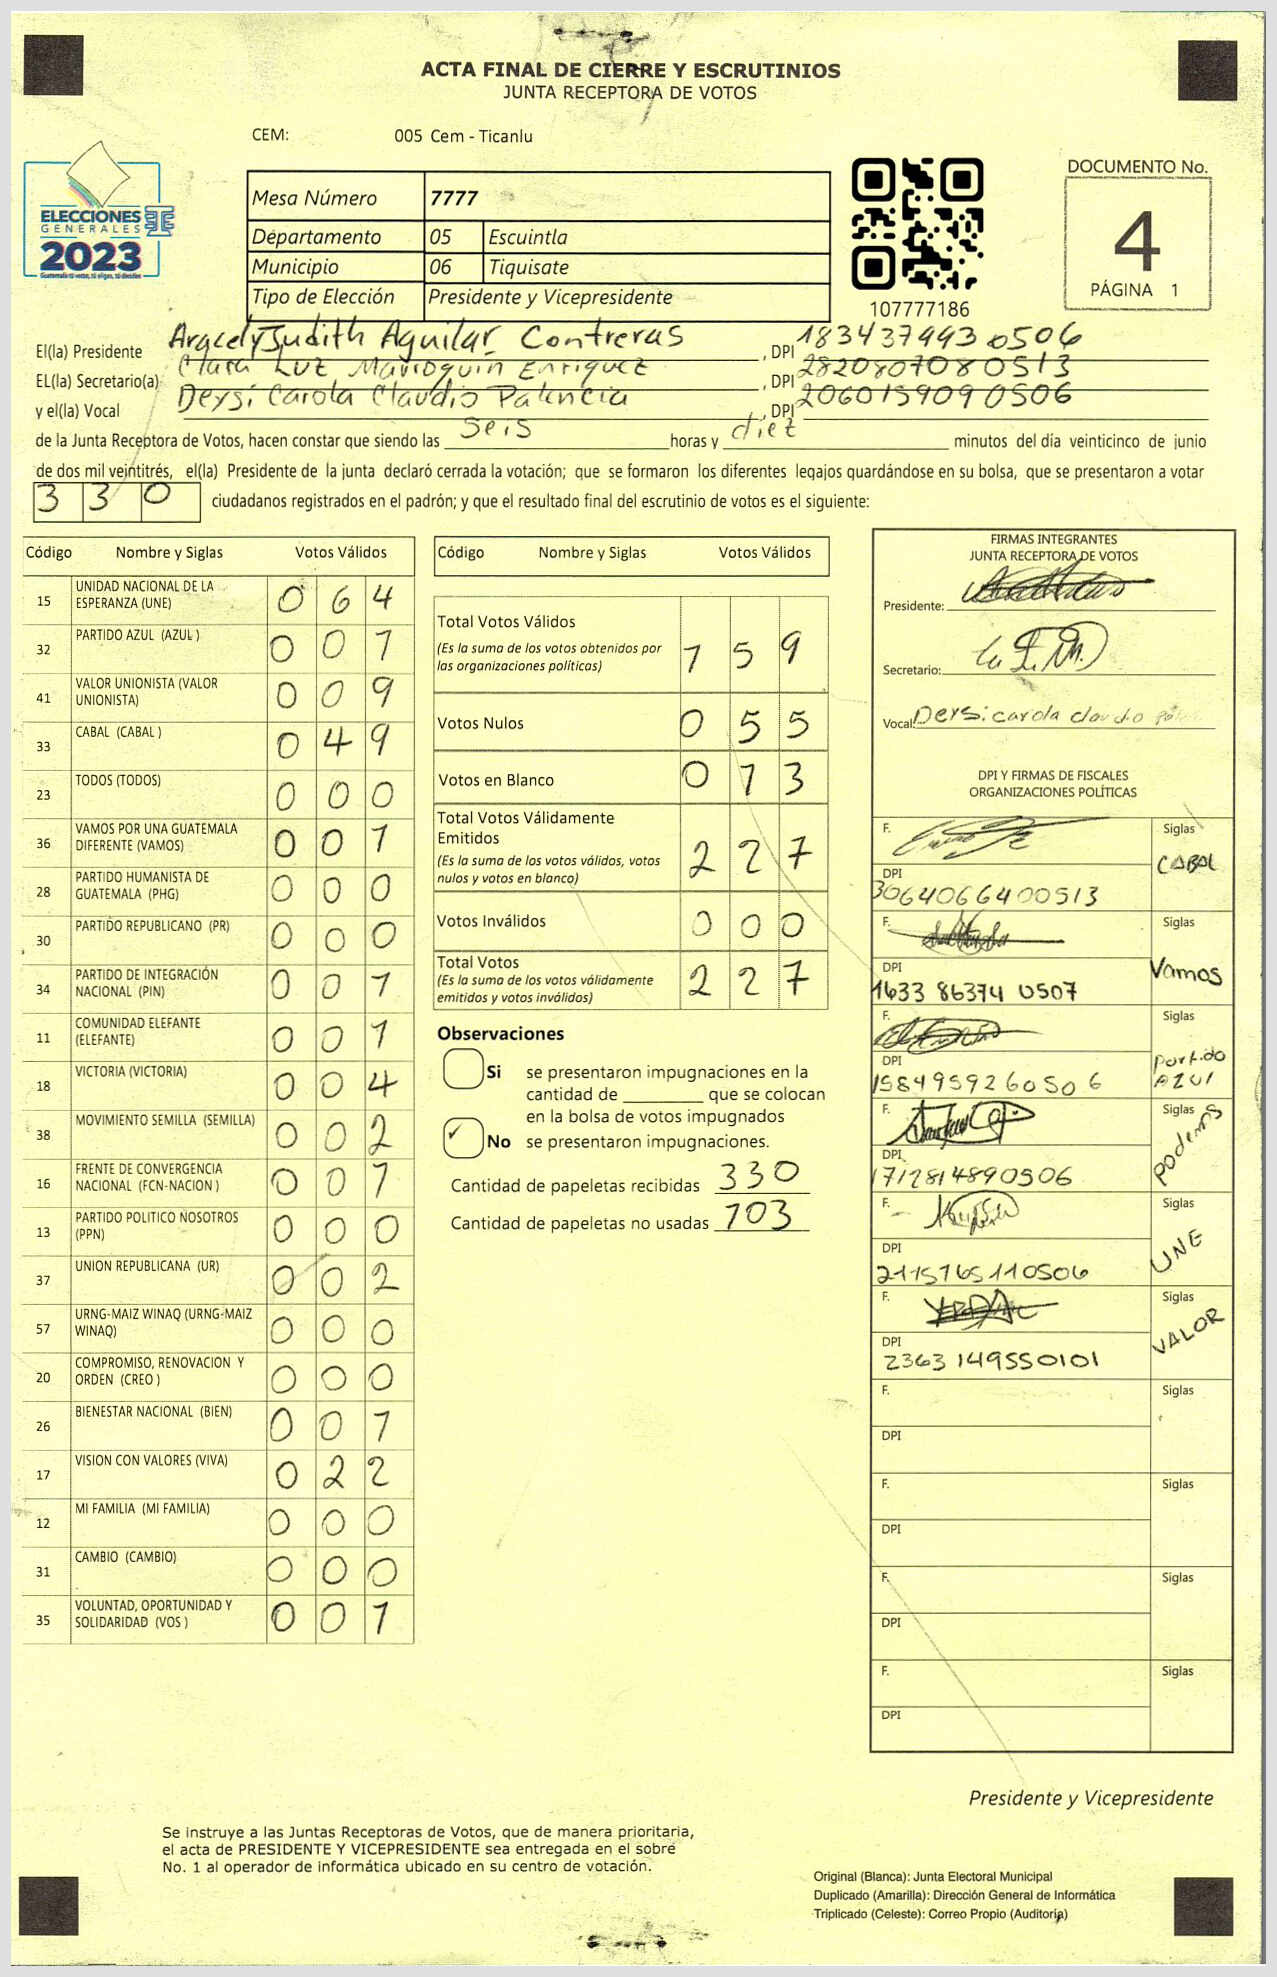 ACTA FINAL DE CIERRE Y ESCRUTINIOS
JUNTA RECEPTORA DE VOTOS
CEM: 005 Cem - Ticanlu
ELECCIONES
GENERALES
2023
Guatemala tú votas, tú eliges, tú decides
Mesa Número 7777
Departamento 05 Escuintla
Municipio 06 Tiquisate
Tipo de Elección Presidente y Vicepresidente
107777186
DOCUMENTO No.
4
PÁGINA 1
El(la) Presidente Aracely Judith Aguilar Contreras, DPI 1834374430506
EL(la) Secretario(a) Clara Luz Marroquin Enriquez, DPI 2820807080513
y el(la) Vocal Dersi Carola Claudio Palencia, DPI 2060159090506
de la Junta Receptora de Votos, hacen constar que siendo las seis horas y diez minutos del día veinticinco de junio
de dos mil veintitrés, el(la) Presidente de la junta declaró cerrada la votación; que se formaron los diferentes legajos guardándose en su bolsa, que se presentaron a votar
330 ciudadanos registrados en el padrón; y que el resultado final del escrutinio de votos es el siguiente:
Código Nombre y Siglas Votos Válidos
15 UNIDAD NACIONAL DE LA ESPERANZA (UNE) 064
32 PARTIDO AZUL (AZUL ) 001
41 VALOR UNIONISTA (VALOR UNIONISTA) 009
33 CABAL (CABAL ) 049
23 TODOS (TODOS) 000
36 VAMOS POR UNA GUATEMALA DIFERENTE (VAMOS) 001
28 PARTIDO HUMANISTA DE GUATEMALA (PHG) 000
30 PARTIDO REPUBLICANO (PR) 000
34 PARTIDO DE INTEGRACIÓN NACIONAL (PIN) 001
11 COMUNIDAD ELEFANTE (ELEFANTE) 001
18 VICTORIA (VICTORIA) 004
38 MOVIMIENTO SEMILLA (SEMILLA) 002
16 FRENTE DE CONVERGENCIA NACIONAL (FCN-NACION ) 001
13 PARTIDO POLITICO NOSOTROS (PPN) 000
37 UNION REPUBLICANA (UR) 002
57 URNG-MAIZ WINAQ (URNG-MAIZ WINAQ) 000
20 COMPROMISO, RENOVACION Y ORDEN (CREO ) 000
26 BIENESTAR NACIONAL (BIEN) 001
17 VISION CON VALORES (VIVA) 022
12 MI FAMILIA (MI FAMILIA) 000
31 CAMBIO (CAMBIO) 000
35 VOLUNTAD, OPORTUNIDAD Y SOLIDARIDAD (VOS ) 001
Código Nombre y Siglas Votos Válidos
Total Votos Válidos 159
(Es la suma de los votos obtenidos por
las organizaciones políticas)
Votos Nulos 055
Votos en Blanco 013
Total Votos Válidamente
Emitidos 227
(Es la suma de los votos válidos, votos
nulos y votos en blanco)
Votos Inválidos 000
Total Votos 227
(Es la suma de los votos válidamente
emitidos y votos inválidos)
Observaciones
Si se presentaron impugnaciones en la
cantidad de ________ que se colocan
en la bolsa de votos impugnados
✓ No se presentaron impugnaciones.
Cantidad de papeletas recibidas 330
Cantidad de papeletas no usadas 103
FIRMAS INTEGRANTES
JUNTA RECEPTORA DE VOTOS
Presidente:
Secretario:
Vocal: Dersi carola claudio
DPI Y FIRMAS DE FISCALES
ORGANIZACIONES POLÍTICAS
F. Siglas CABAL
DPI 3064066400513
F. Siglas Vamos
DPI 1633 86374 0507
F. Siglas Partido AZUl
DPI 1584959260506
F. Siglas Podemos
DPI 1712814890506
F. Siglas UNE
DPI 2115765110506
F. Siglas VALOR
DPI 2363 149550101
F. Siglas
DPI
F. Siglas
DPI
F. Siglas
DPI
F. Siglas
DPI
Presidente y Vicepresidente
Se instruye a las Juntas Receptoras de Votos, que de manera prioritaria,
el acta de PRESIDENTE Y VICEPRESIDENTE sea entregada en el sobre
No. 1 al operador de informática ubicado en su centro de votación.
Original (Blanca): Junta Electoral Municipal
Duplicado (Amarilla): Dirección General de Informática
Triplicado (Celeste): Correo Propio (Auditoría)